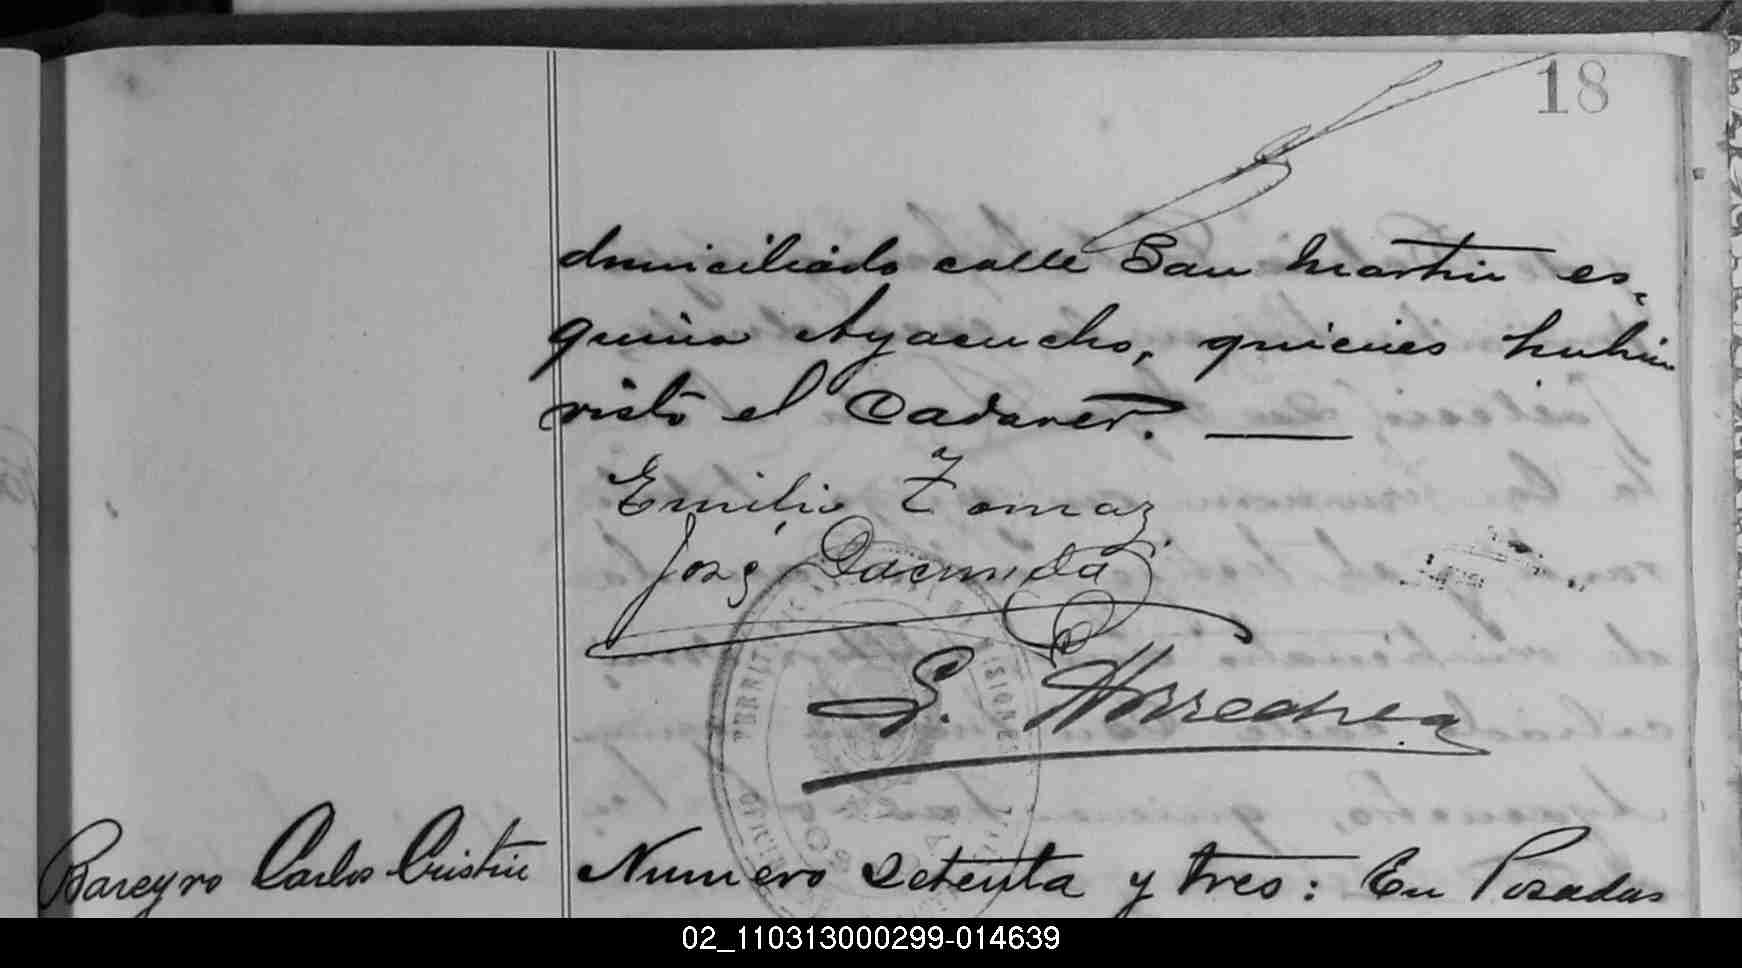 18
domiciliado calle San Martin es-
quina Ayacucho, quienes habian
visto el Cadaver.
Emilio Tomaz
José Dacunda
Bareyro Carlos Cristin
Numero setenta y tres: En Posadas
02_110313000299-014639